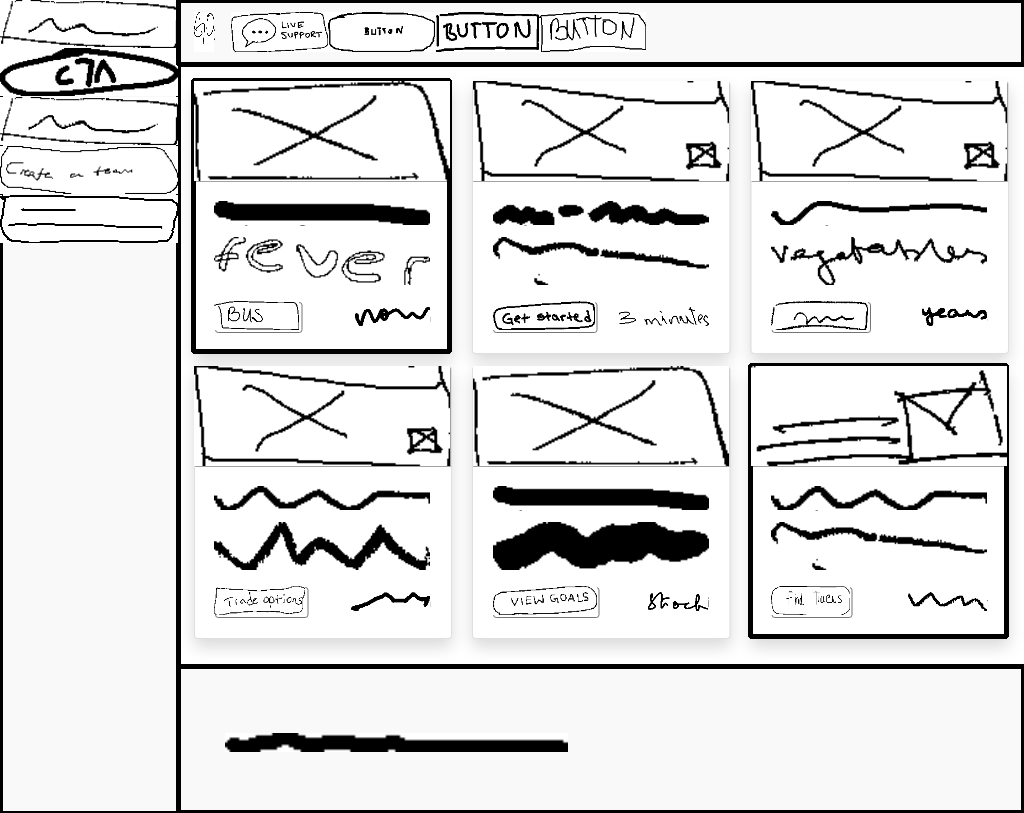 CTA
Create a team
LIVE
SUPPORT
BUTTON
BUTTON
BUTTON
fever
BUS
now
Get started
3 minutes
vegetables
years
Trade options
VIEW GOALS
Stock